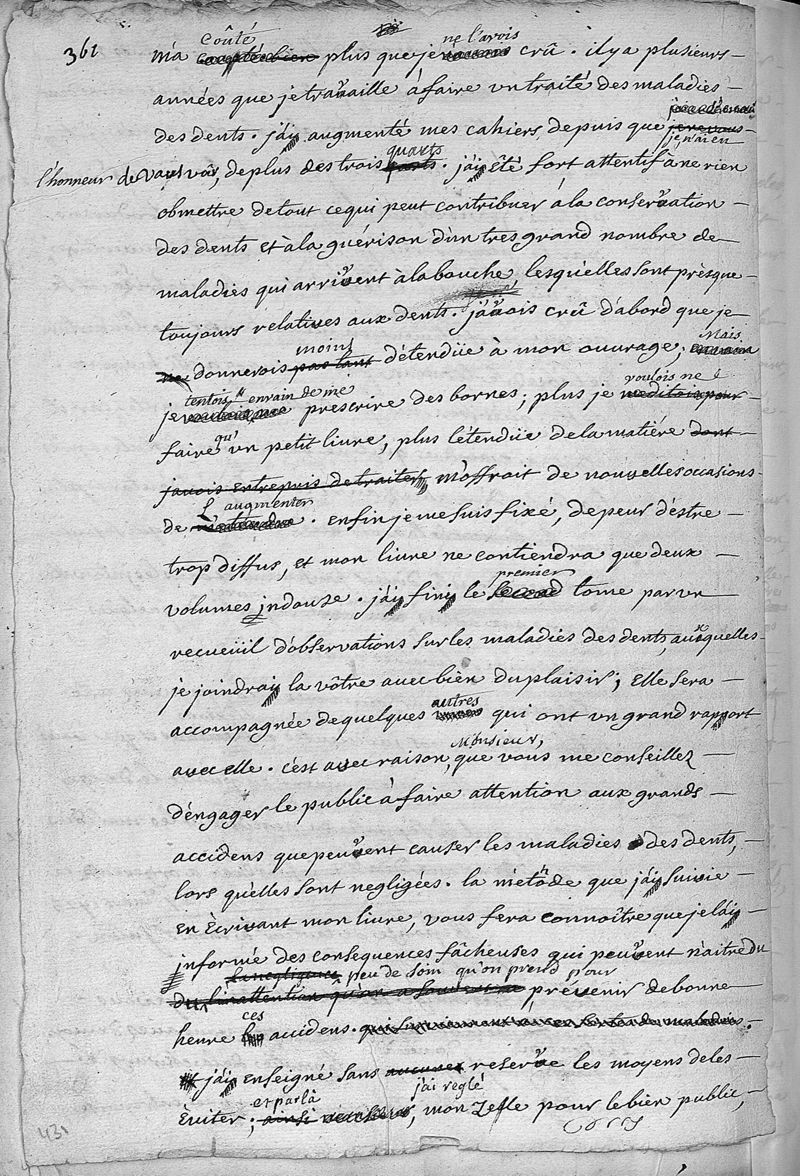 361
coûté ne l'avois
m'a plus que je crû. il y a plusieurs
années que je travaille à faire un traité des maladies
des dents. j'ay augmenté mes cahiers, depuis que
quarts je n'ai eu
l'honneur de vous voir, de plus des trois parts. j'ay été fort attentif à ne rien
obmettre de tout ce qui peut contribuer à la conservation
des dents et à la guérison d'un tres grand nombre de
maladies qui arrivent à la bouche, lesquelles sont presque
toujours relatives aux dents. j'avois crû d'abord que je
moins Mais
ne donnerois pas tant d'étendüe à mon ouvrage;
tentois envain de me voulois ne
je prescrire des bornes; plus je meditois pour
qu'
faire un petit livre, plus l'étendüe de la matiére dont
javois entrepris de traiter, m'offroit de nouvelles occasions
l'augmenter
de . enfin je me suis fixé, de peur d'estre
trop diffus, et mon livre ne contiendra que deux
premier
volumes indouze. j'ay finy le second tome par un
recueüil d'observations sur les maladies des dents, auxquelles
je joindray la vôtre avec bien du plaisir; elle sera
autres
accompagnée de quelques qui ont un grand rapport
Monsieur,
avec elle. c'est avec raison, que vous me conseillez
d'engager le public à faire attention aux grands
accidens que peuvent causer les maladies des dents,
lors qu'elles sont negligées. la métode que j'ay suivie
en Ecrivant mon livre, vous fera connoître que je l'ay
informé des consequences fâcheuses qui peuvent naitre du
la negligence peu de soin qu'on prend pour
du l'inattention qu'on a souvent a prévenir de bonne
ces
heure les accidens.
j'ay enseigné sans aucunes reserve les moyens de les
et par là j'ai reglé
Eviter; ainsi , mon Zesle pour le bien public,
431